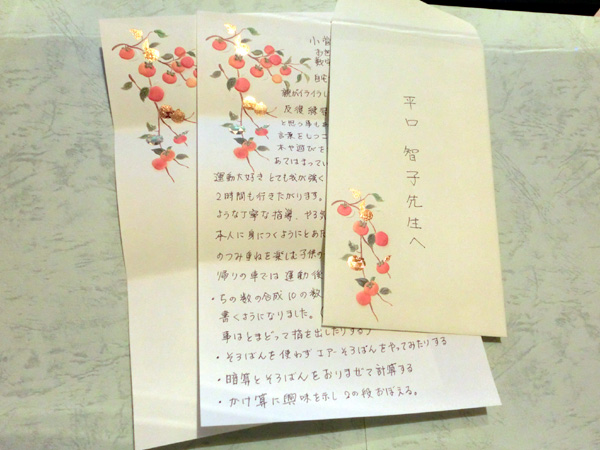 平口 智子先生へ
小
自宅
親がイライラし
反復練習
と思う事もあ
言葉をしつこ
本や遊びを
あてはまってい
運動大好き とても我が強く
2時間も行きたがります。
ような丁寧な指導、やる気
本人に身につくようにとあた
のつみ重ねを楽しむ子供の
帰りの車では 運動後
・5の数の合成 10の数
書くようになりました。
事はとまどって指を出したりする
・そろばんを使わず エアーそろばんをやってみたりする
・暗算とそろばんをおりまぜて計算する
・かけ算に興味を示し 2の段おぼえる。